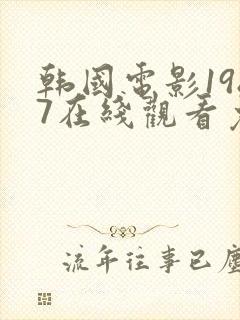 韩國電影19
7在綫觀看
流年往事已